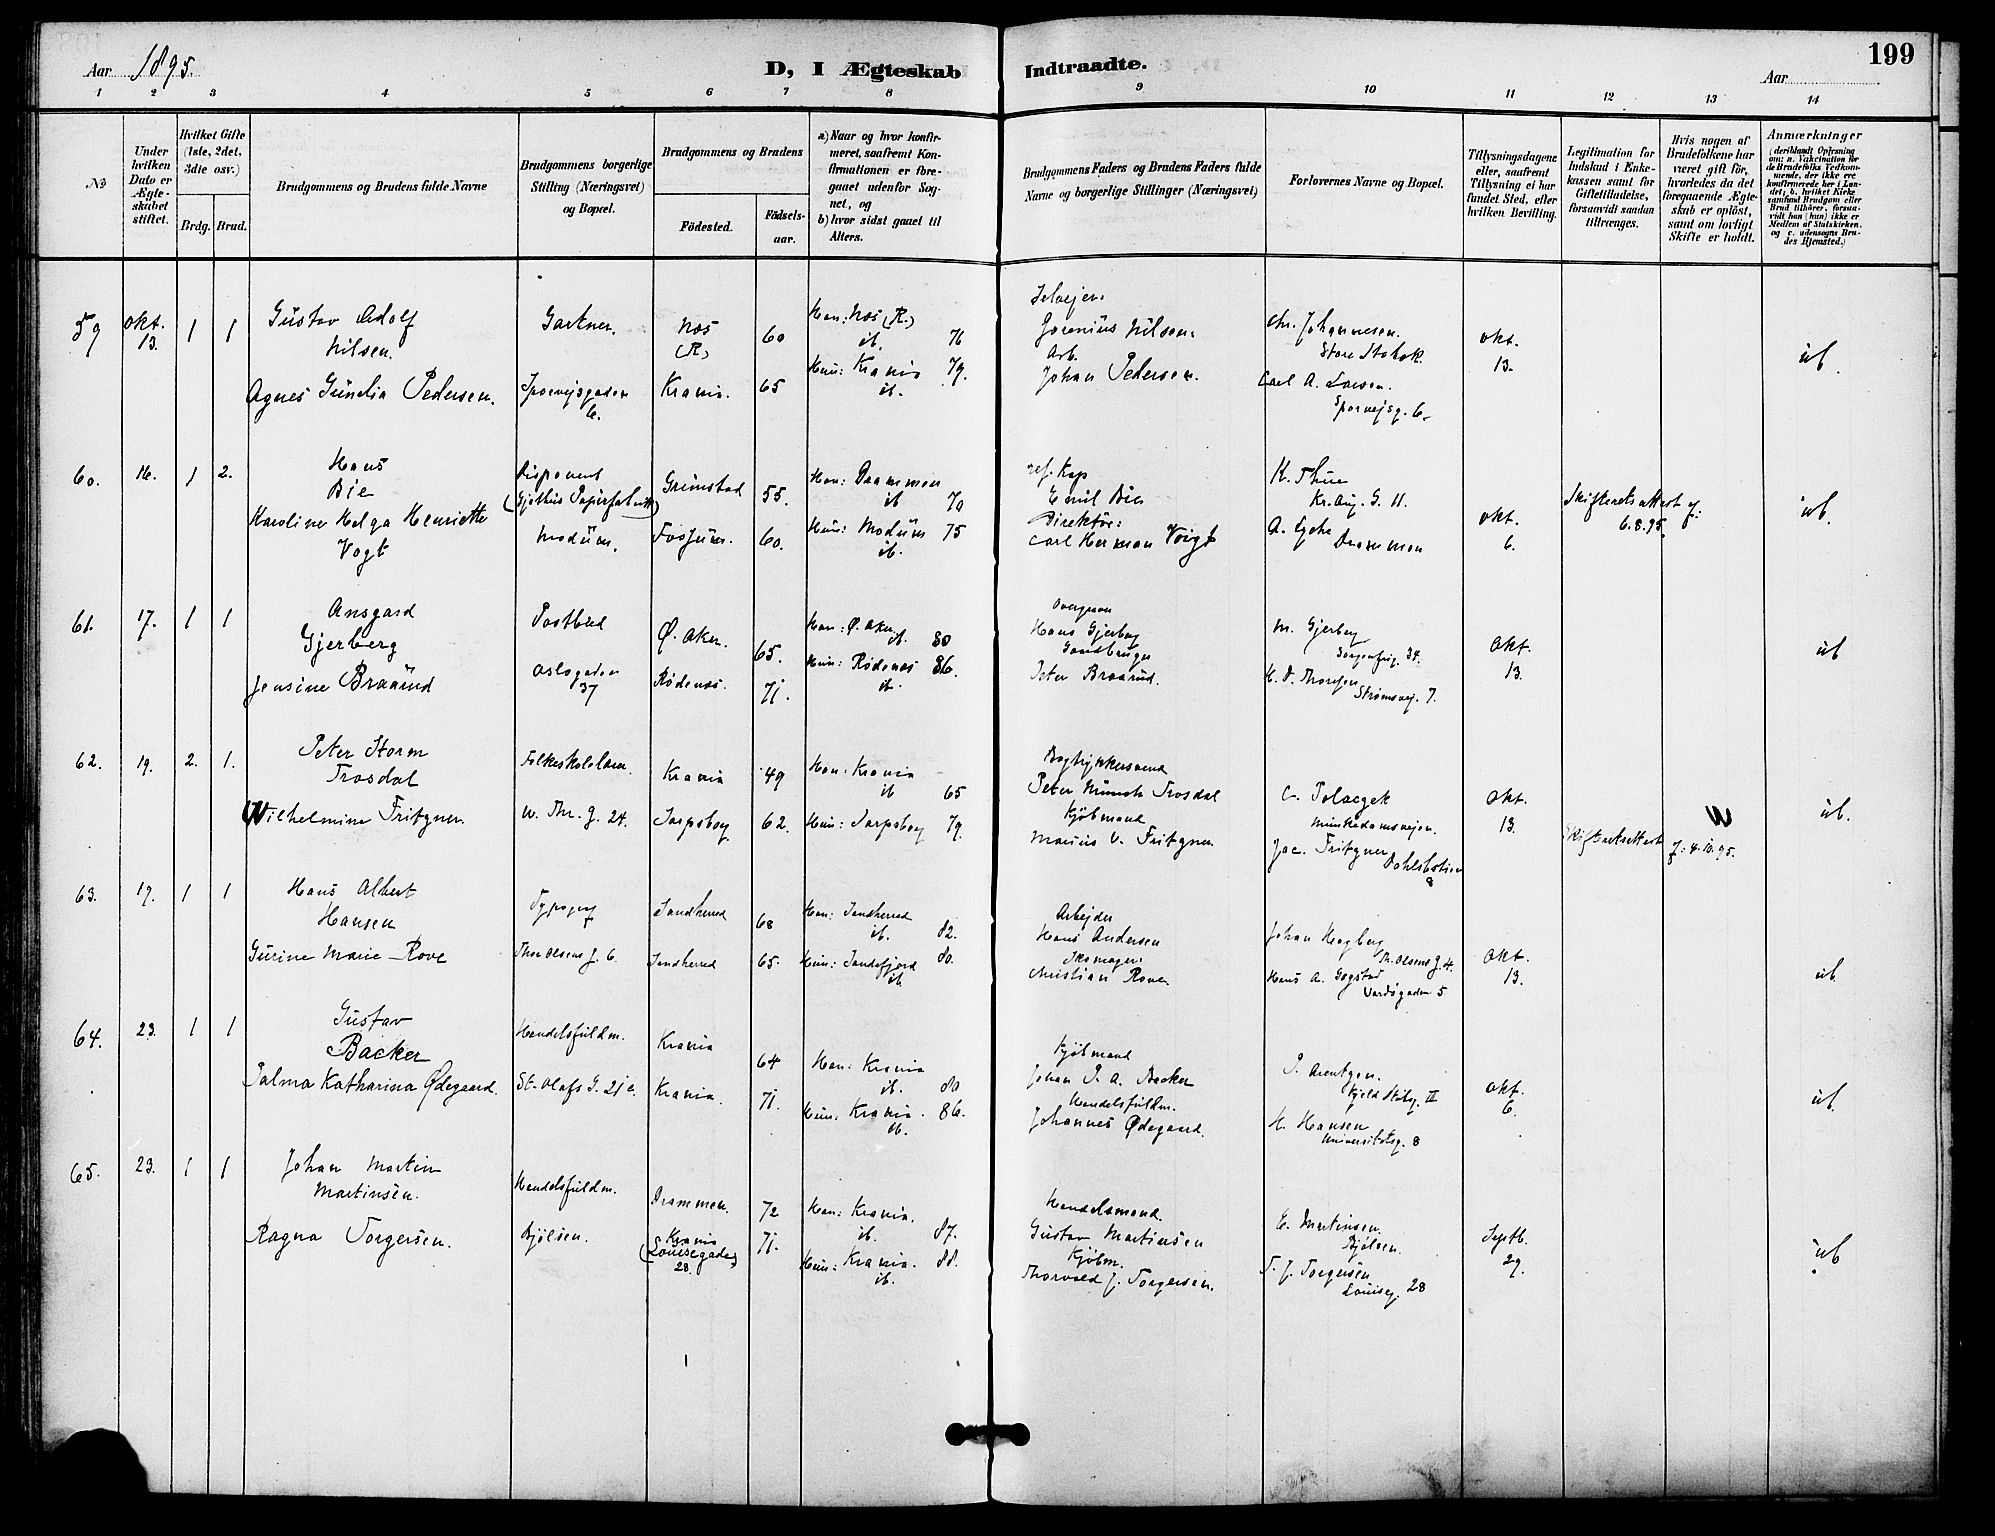 Aar 1895.
D, I Ægteskab
Indtraadte.
199
Aar
1 2 3 4 5 6 7 8 9 10 11 12 13 14
No
Under hvilken Dato er Ægteskabet stiftet.
Hvilket Gifte (1ste, 2det, 3die osv.)
Brdg. Brud.
Brudgommens og Brudens fulde Navne
Brudgommens borgerlige Stilling (Næringsvei) og Bopæl.
Brudgommens og Brudens
Födested.
Födselsaar.
a) Naar og hvor konfirmeret, saafremt Konfirmationen er foregaaet udenfor Sognet, og
b) hvor sidst gaaet til Alters.
Brudgommens Faders og Brudens Faders fulde Navne og borgerlige Stillinger (Næringsvei)
Forlovernes Navne og Bopæl.
Tillysningsdagene eller, saafremt Tillysning ei har fundet Sted, efter hvilken Bevilling.
Legitimation for Indskud i Enkekassen samt for Giftetilladelse, forsaavidt saadan tiltrænges.
Hvis nogen af Brudefolkene har været gift för, hvorledes da det foregaaende Ægteskab er oplöst, samt om lovligt Skifte er holdt.
Anmærkninger
59 Okt. 13. 1 1
Gustav Adolf
Nilsen.
Gartner.
Nes (R.) 60
Han: Nes (R.)
ib. 76
Selvejer.
Nilsen.
Chr. Johannesen.
Store Stabek.
Okt. 13.
ub.
Agnes Gunelia Pedersen.
Sporvejsgaden 6.
Krania. 65
Hun: Krania 79.
ib.
Arb.
Johan Pedersen.
Carl A. Larsen.
Sporvejsg. 6.
60. 16. 1 2.
Hans
Bie
Disponent
Grimstad 55.
Han: Drammen
ib 70
Emil Bie
K. Thue
Kr. Aug. G. 11.
Okt. 6.
Skifteretsattest f:
6.8.95.
ub.
Karoline Helga Henriette
Vogt
Modum.
Fossum. 60.
Hun: Modum 75
ib.
Direktør:
Carl Herman Voigt
Drammen
61. 17. 1 1
Ansgard
Gjerberg
Postbud
Ø. Aker. 65.
Han: Ø. Aker
ib. 80
Hans Gjerberg
M. Gjerberg
Sorgenfrig. 34.
Okt. 13.
ub
Jensine Braarud
Oslogaden 37
Rødenes. 71.
Hun: Rødenes 86.
ib.
Gaardbruger
Peter Braarud.
Strømsvej. 7.
62. 19. 2. 1.
Peter Storm
Trosdal
Folkeskolelærer.
Krania 49
Han: Krania
ib 65
Bogtrykkersvend
Peter Munch Trosdal
C. Polaczek
Munkedamsvejen.
Okt. 13.
ub.
Wilhelmine Fritzner.
W. Thr. G. 24.
Sarpsborg 62.
Hun: Sarpsborg 79.
Kjøbmand
Marius V. Fritzner
Jac. Fritzner
Skifteretsattest f: 4.10.95.
63. 19. 1 1
Hans Albert
Hansen
Typograf
Sandherred 68
Han: Sandherred
ib. 82.
Arbejder
Hans Andersen
Th. Olsens G. 4.
Okt. 13.
ub.
Gurine Marie Rove
Thor Olsens G. 6.
Sandherred 65.
Hun: Sandefjord 80.
ib.
Skomager
Christian Rove
Hans A. Gogstad
Vardøgaden 5
64. 23. 1 1
Gustav
Backer
Handelsfuldm.
Krania 64
Han: Krania
ib. 80
Kjøbmand
Johan P. A. Backer
P. Arentzen.
Kjeld Stubsg. III
Okt. 6.
ub.
Palma Katharina Ødegaard.
St. Olafs G. 21 c.
Krania. 71.
Hun: Krania. 86.
ib.
Handelsfuldm.
Johannes Ødegaard.
H. Hansen
Universitetsg. 8
65. 23. 1 1
Johan Martin
Martinsen.
Handelsfuldm.
Drammen. 72
Han: Krania.
ib. 87.
Handelsmand.
Gustav Martinsen
E. Martinsen
Bjølsen.
Septb. 29.
ub
Ragna Torgersen.
Bjølsen.
Krania
(Louisegaden)
28. 71.
Hun: Krania. 88.
ib.
Kjøbm.
Thorvald J. Torgersen.
T. J. Torgersen
Louiseg. 28